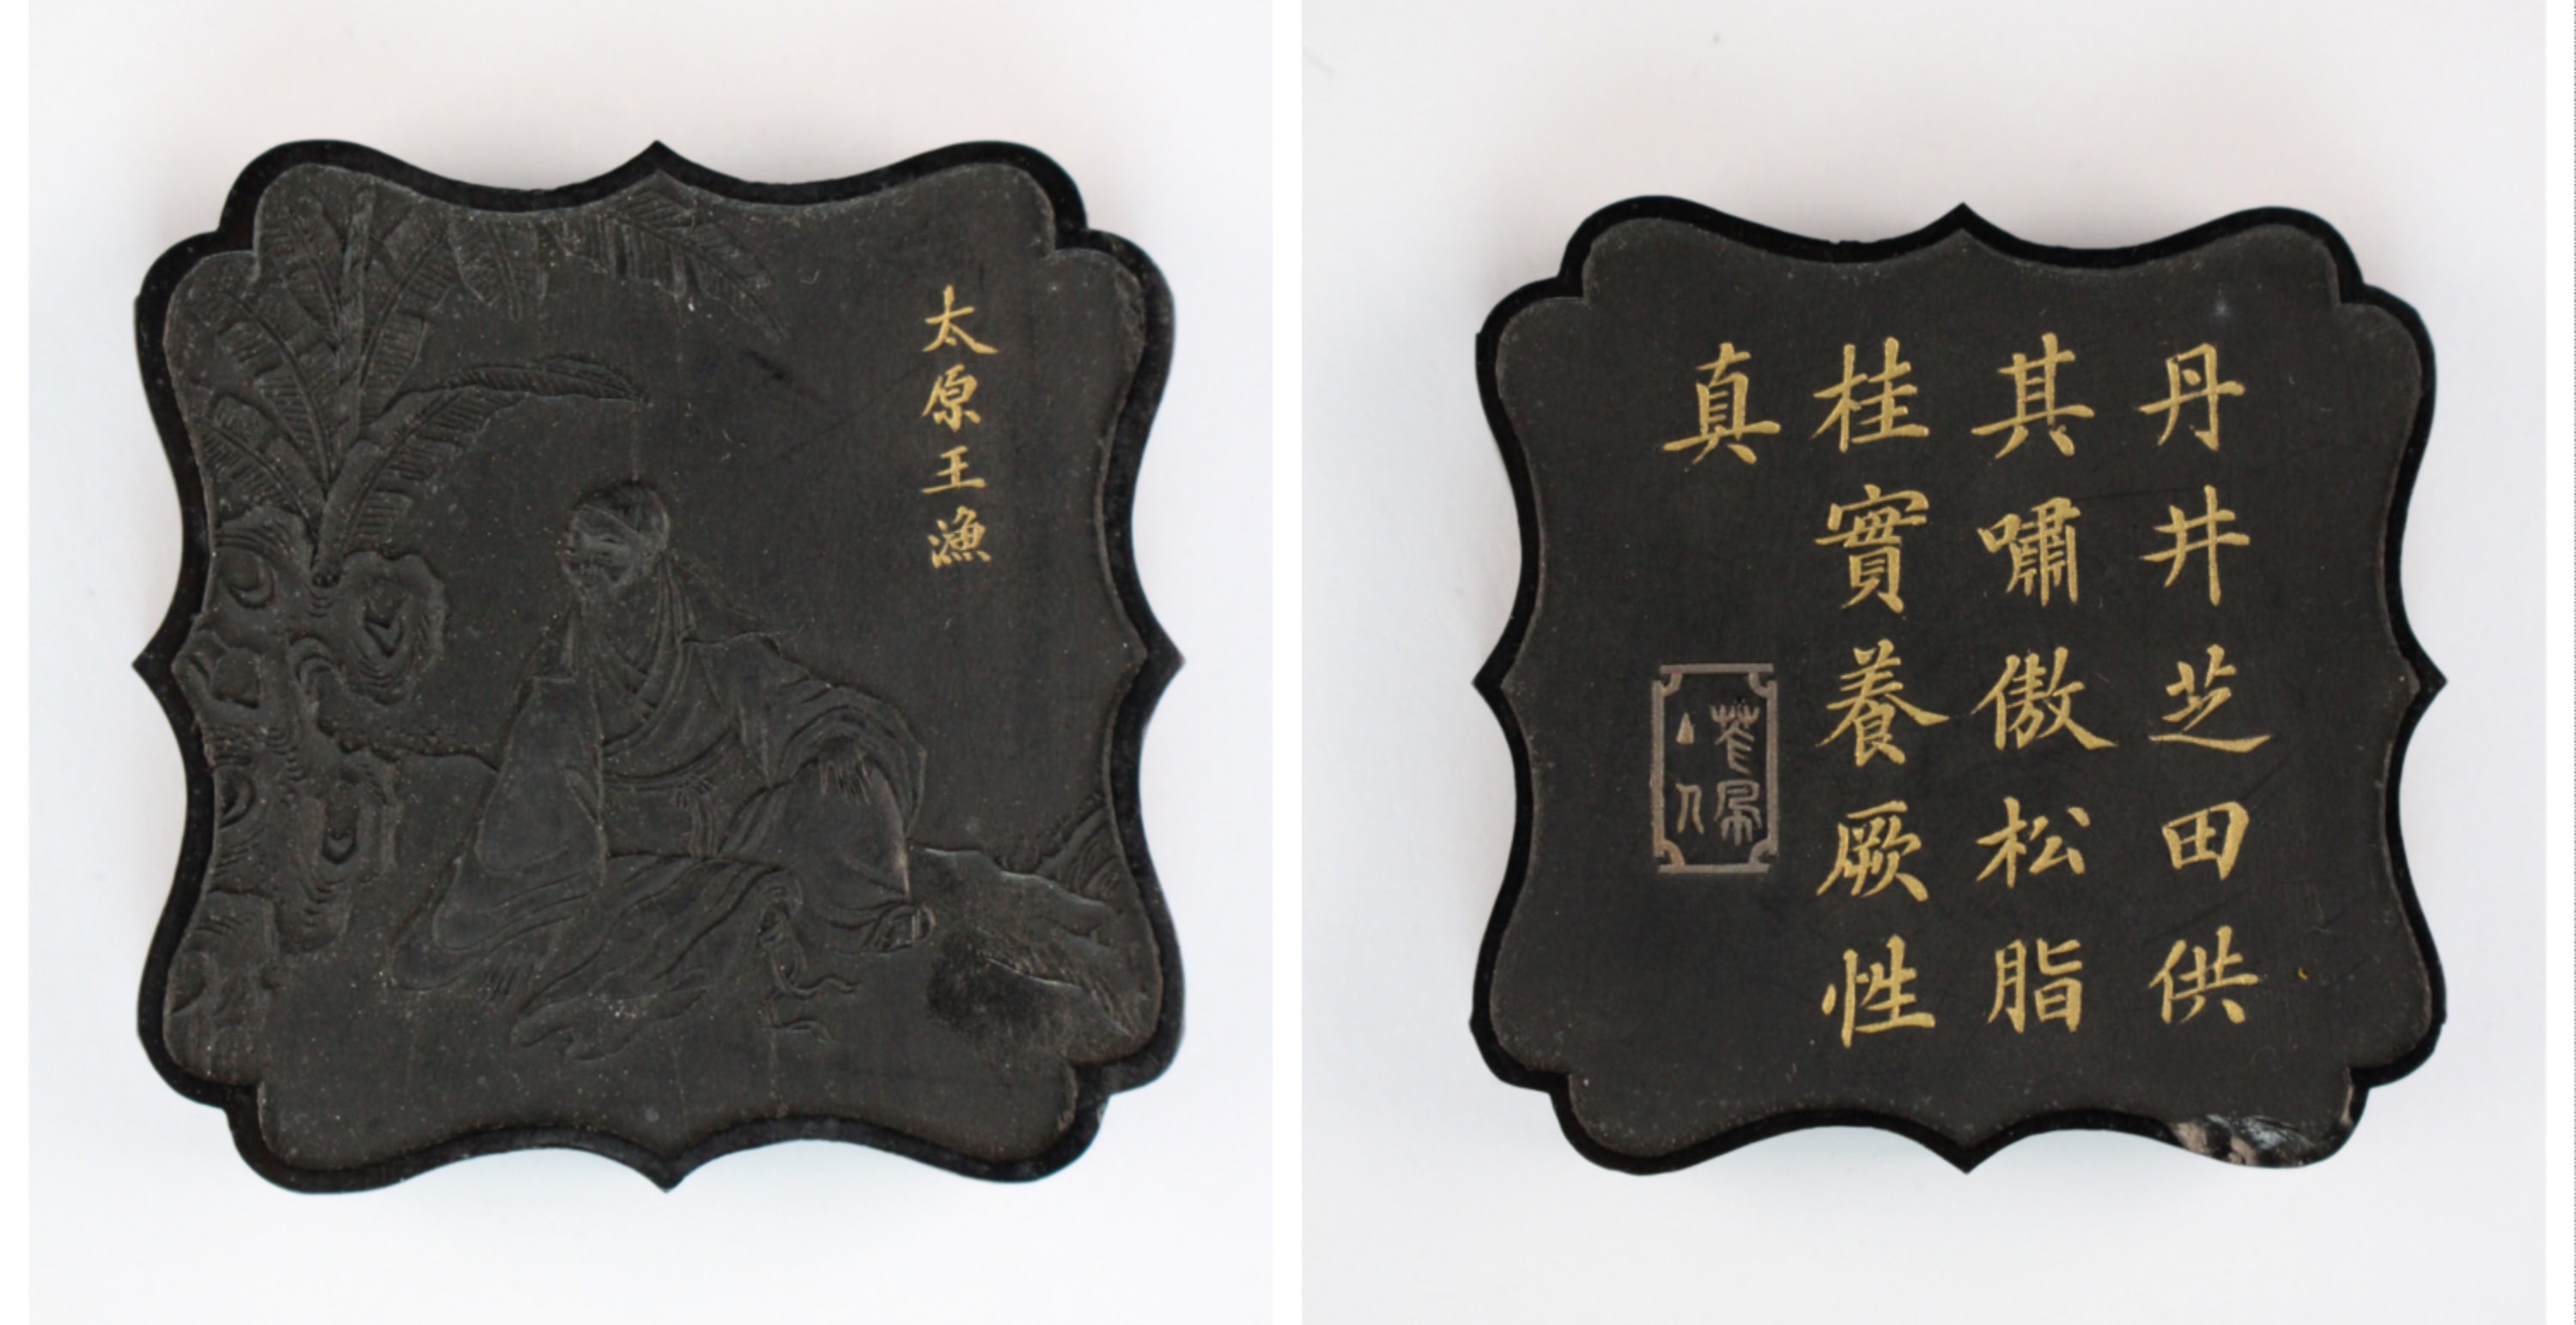 太原王漁
丹井芝田供
其嘯傲松脂
桂實養厥性
真